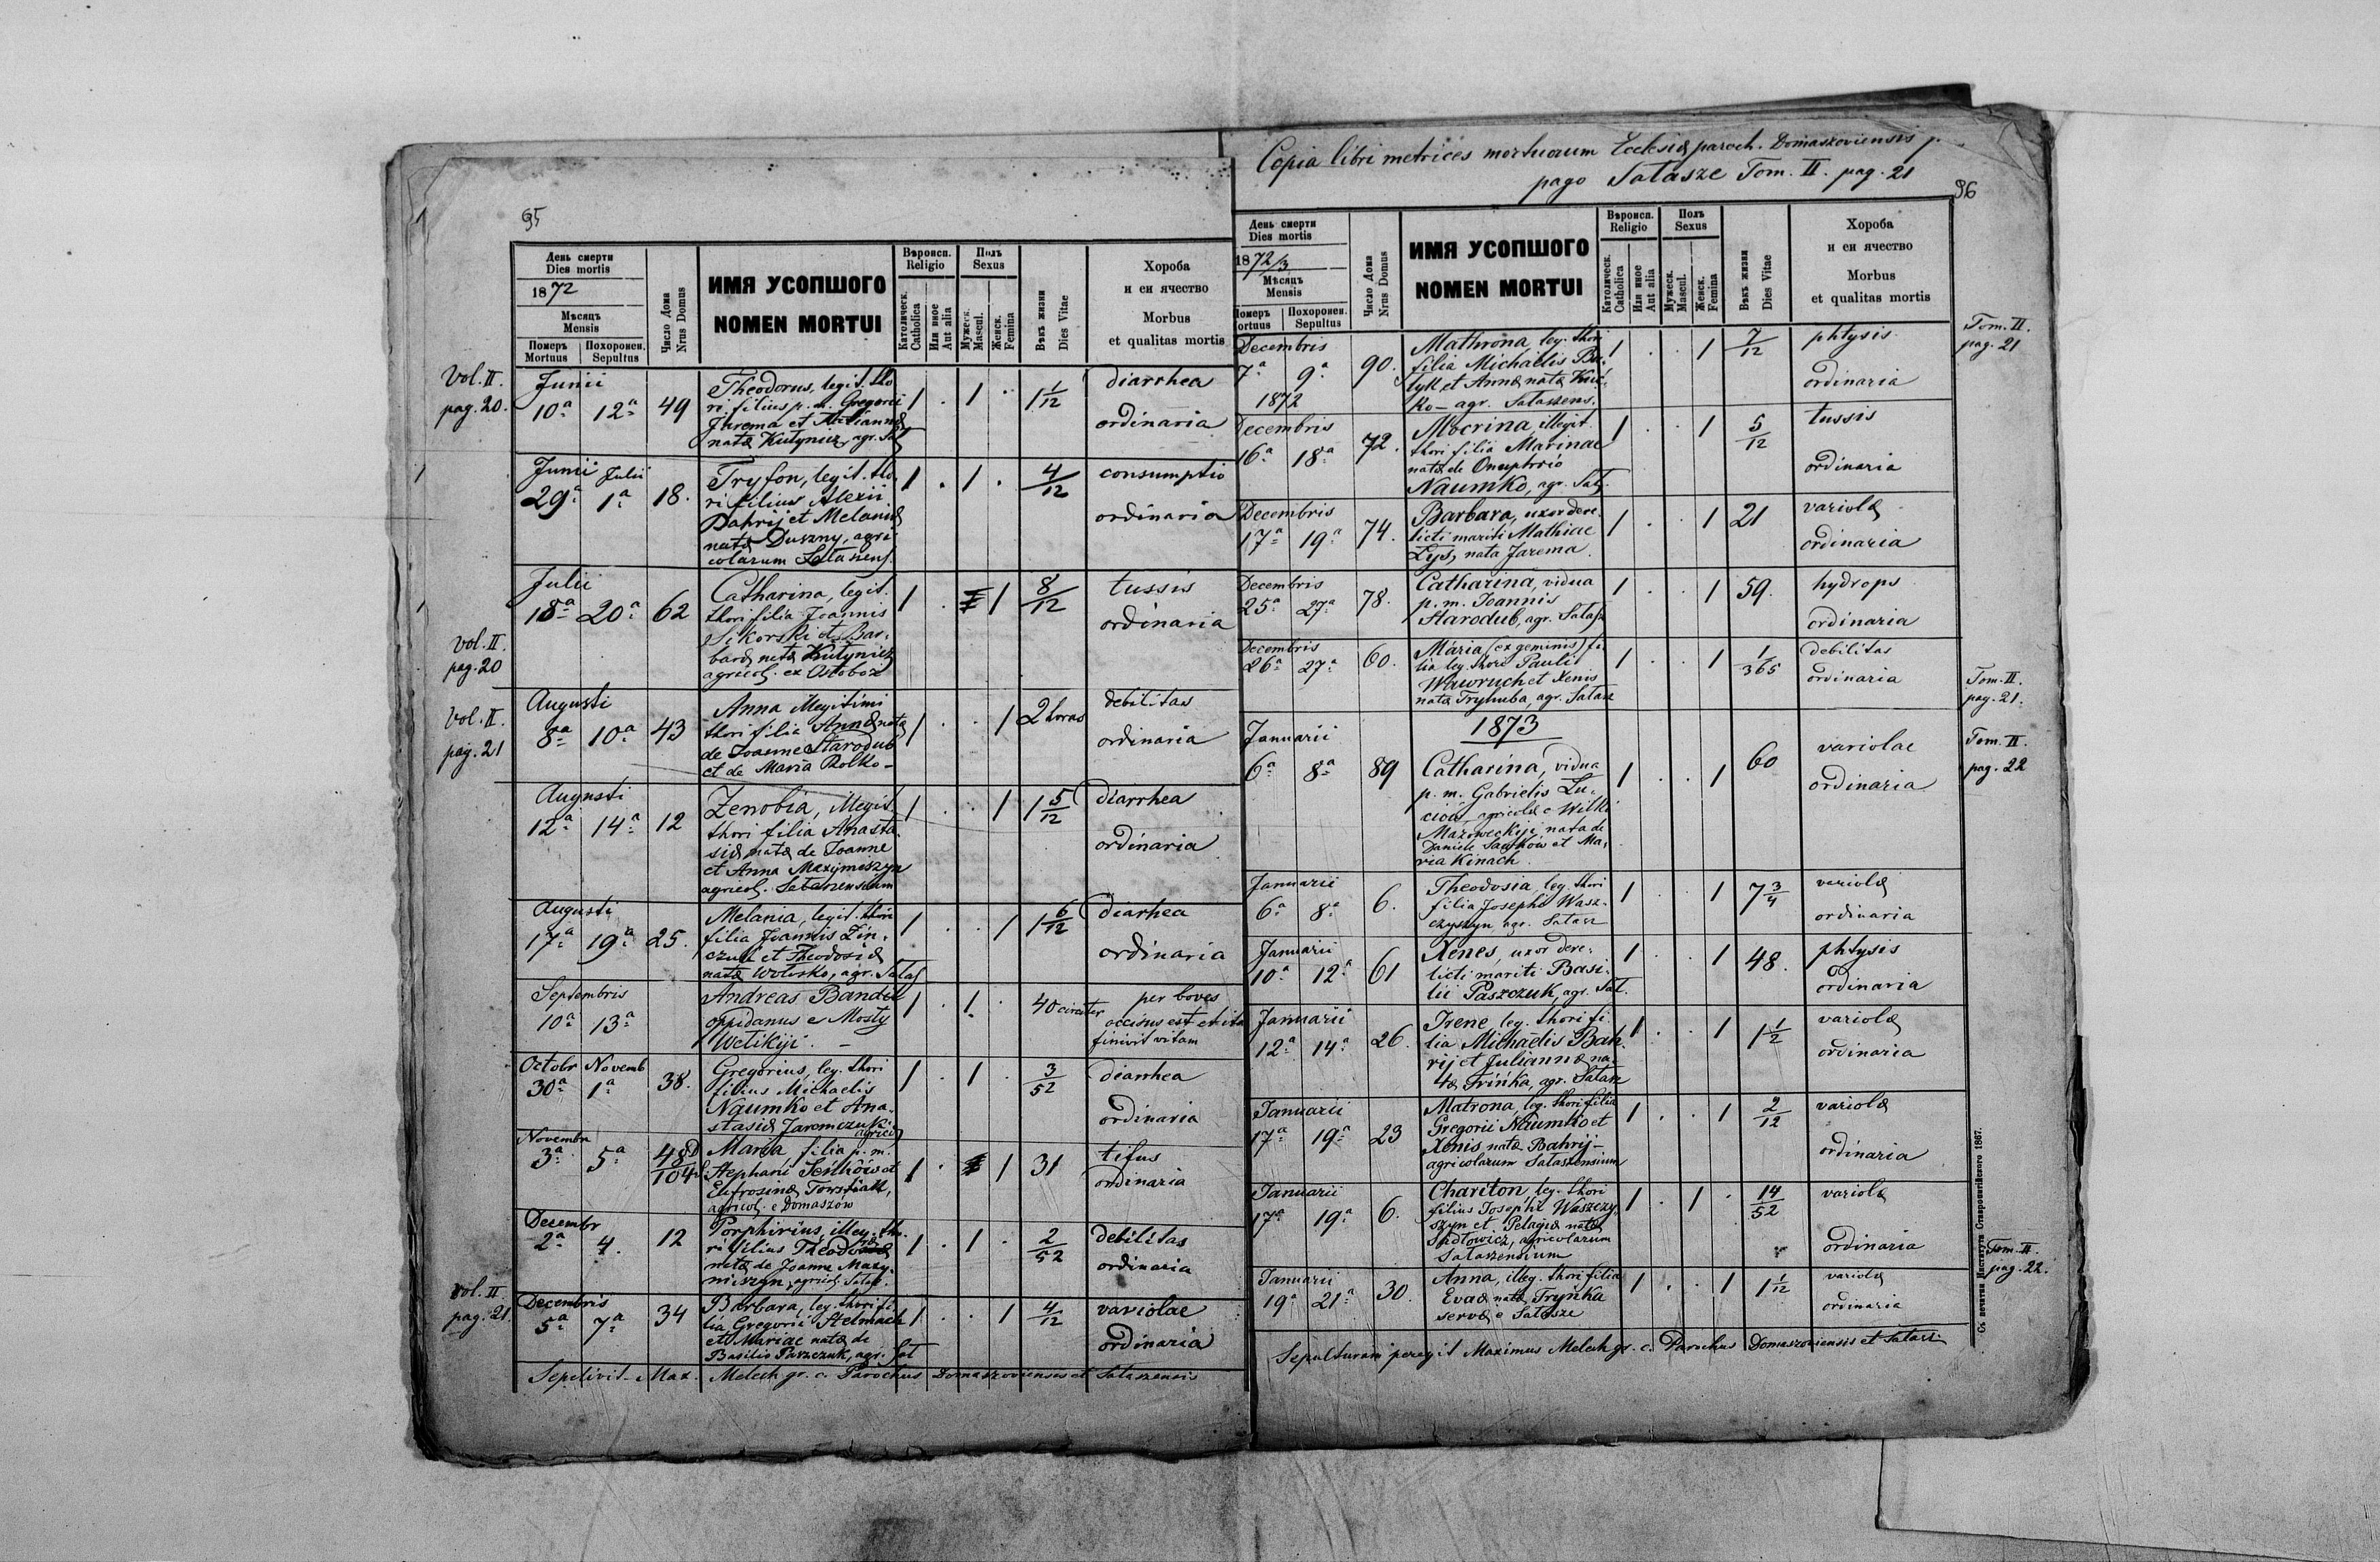 95
День смерти
Dies mortis
1872
Мѣсяць
Mensis
Померъ Похоронен.
Mortuus Sepultus
Число Дома
Nrus Domus
ИМЯ УСОПШОГО
NOMEN MORTUI
Вѣроисп.
Religio
Католическ.
Catholica
Или иное
Aut alia
Полъ
Sexus
Мужеск.
Mascul.
Женск.
Femina
Вѣкъ жизни
Dies Vitae
Хороба
и еи ячество
Morbus
et qualitas mortis
Vol. II.
pag. 20.
Junii
10ª 12ª 49
Theodorus, legit. tho
ri filius p. m. Gregorii
Jarema et
natæ Kutynicz, agr. Sat
1 . 1 . 1 1/12
diarrhea
ordinaria
Junii Julii
29ª 1ª 18.
Tryfon, legit. tho
ri filius Alexii
Bahrij et Melaniæ
natæ Duszny, agri
colarum Sataszens.
1 . 1 . 4/12
consumptio
ordinaria
Julii
18ª 20ª 62
Catharina, legit.
thori filia Joannis
Sikorski et Bar,
baræ natæ Kutynicz
agricol. ex
1 . 1 8/12
tussis
ordinaria
Vol. II.
pag. 20
Vol. II.
pag. 21
Augusti
8ª 10ª 43
Anna illegitimi
thori filia Annæ nata
de Joanne Starodub
et de Maria Rolko –
1 . . 1 2 horas
debilitas
ordinaria
Augusti
12ª 14ª 12
Zenobia, illegit.
thori filia Anasta.
siæ natæ de Joanne
et Anna Maxymiszyn
agricol. Satanensium
1 . . 1 1 5/12
diarrhea
ordinaria
Augusti
17ª 19ª 25.
Melania, legit. thori
filia Joannis Zin,
czuk et Theodosiæ
natæ Wolosko, agr. Satas
1 . . 1 1 6/12
diarhea
ordinaria
Septembris
10ª 13ª
Andreas Bandil
oppidanus e Mosty
Welikiji. –
1 . 1 . 40 circiter
per boves
occisus est et ita
finivit vitam
Octobr Novemb
30ª 1ª 38.
Gregorius, leg. thori
filius Michaelis
Naumko et Ana.
stasiæ Jaromczuk
agricol
1 . 1 . 3/52
diarrhea
ordinaria
Novembr
3ª 5ª 48/104
Maria, filia p. m.
Stephani Seńków et
Eufrosinæ
agricol. e Domaszow
1 . 1 31
tifus
ordinaria
Decembr
2ª 4. 12
Porphirius, illeg. tho.
ri filius Theodoræ
natæ de Joanne Maxy.
miszyn, agricol. Satas.
1 . 1 . 2/52
debilitas
ordinaria
Vol. II.
pag. 21.
Decembris
5ª 7ª 34
Barbara, leg. thori fi.
lia Gregorii Stelmach
et Mariae natæ de
Basilio Paszczuk, agr. Sat
1 . . 1 4/12
variolae
ordinaria
Sepelivit Max. Melech gr. c. Parochus Domaszoviensis et Sataszensis
Copia libri metrices mortuorum Ecclesiæ paroch. Domaszoviensis p.
pago Satasze Tom. II. pag. 21
96
День смерти
Dies mortis
1872/3
Мѣсяць
Mensis
Померъ Похоронен.
Mortuus Sepultus
Число Дома
Nrus Domus
ИМЯ УСОПШОГО
NOMEN MORTUI
Вѣроисп.
Religio
Католическ.
Catholica
Или иное
Aut alia
Полъ
Sexus
Мужеск.
Mascul.
Женск.
Femina
Вѣкъ жизни
Dies Vitae
Хороба
и еи ячество
Morbus
et qualitas mortis
Tom. II.
pag. 21
Decembris
7ª 9ª 90.
1872
Mathrona leg. thori
filia Michaelis Ba.
tyk et Annæ natæ Kuć.
ko – agr. Sataszens.
1 . . 1 7/12
phtysis
ordinaria
Decembris
16ª 18ª 72.
Mocrina, illegit.
thori filia Marinae
natæ de Onuphrio
Naumko, agr. Sats.
1 . . 1 5/12
tussis
ordinaria
Decembris
17ª 19ª 74.
Barbara, uxor dere.
licti mariti Mathiae
Lys, nata Jarema.
1 . . 1 21
variolæ
ordinaria
Decembris
25ª 27ª 78.
Catharina, vidua
p. m. Joannis
Starodub, agr. Satasz
1 . . 1 59.
hydrops
ordinaria
Decembris
26ª 27ª 60.
Maria (ex geminis) fi.
lia leg. thori Pauli
Wawruch et Xenis
natæ Tryhuba, agr. Satasz
1 . . 1 1/365
debilitas
ordinaria
Tom. II.
pag. 21.
1873
Januarii
6ª 8ª 89
Catharina, vidua
p. m. Gabrielis Lu,
ciów, agricolæ e Wilki
Mazoweckiji nata de
Daniele et Ma,
ria Kinach.
1 . . 1 60
variolae
ordinaria
Tom. II.
pag. 22
Januarii
6ª 8ª 6.
Theodosia, leg. thori
filia Josephi Wasz.
czyszyn agr. Satasz
1 . . 1 7 3/4
variolæ
ordinaria
Januarii
10ª 12ª 61
Xenes, uxor dere,
licti mariti Basi.
lii Paszczuk, agr. Sat.
1 . . 1 48.
phtysis
ordinaria
Januarii
12ª 14ª 26.
Irene leg. thori fi.
lia Michaelis Bah.
rij et Juliannæ na.
tæ Trińka, agr. Satasz
1 . . 1 1 1/2
variolæ
ordinaria
Januarii
17ª 19ª 23
Matrona, leg. thori filia
Gregorii Naumko et
Xenis natæ Bahrij –
agricolarum Sataszensium
1 . . 1 2/12
variolæ
ordinaria
Januarii
17ª 19ª 6.
Chariton, leg. thori
filius Josephi Waszczy,
szyn et Pelagiæ natæ
Sadłowicz, agricolarum
Sataszensium
1 . 1 . 14/52
variolæ
ordinaria
Tom. II.
pag. 22.
Januarii
19ª 21ª 30.
Anna, illeg. thori filia
Evæ natæ Tryńka
servæ e Satasze
1 . . 1 1 1/12
variolæ
ordinaria
Sepulturam peregit Maximus Melech gr. c. Parochus Domaszoviensis et Satasz.
Съ печатни Института Ставропигійского 1867.